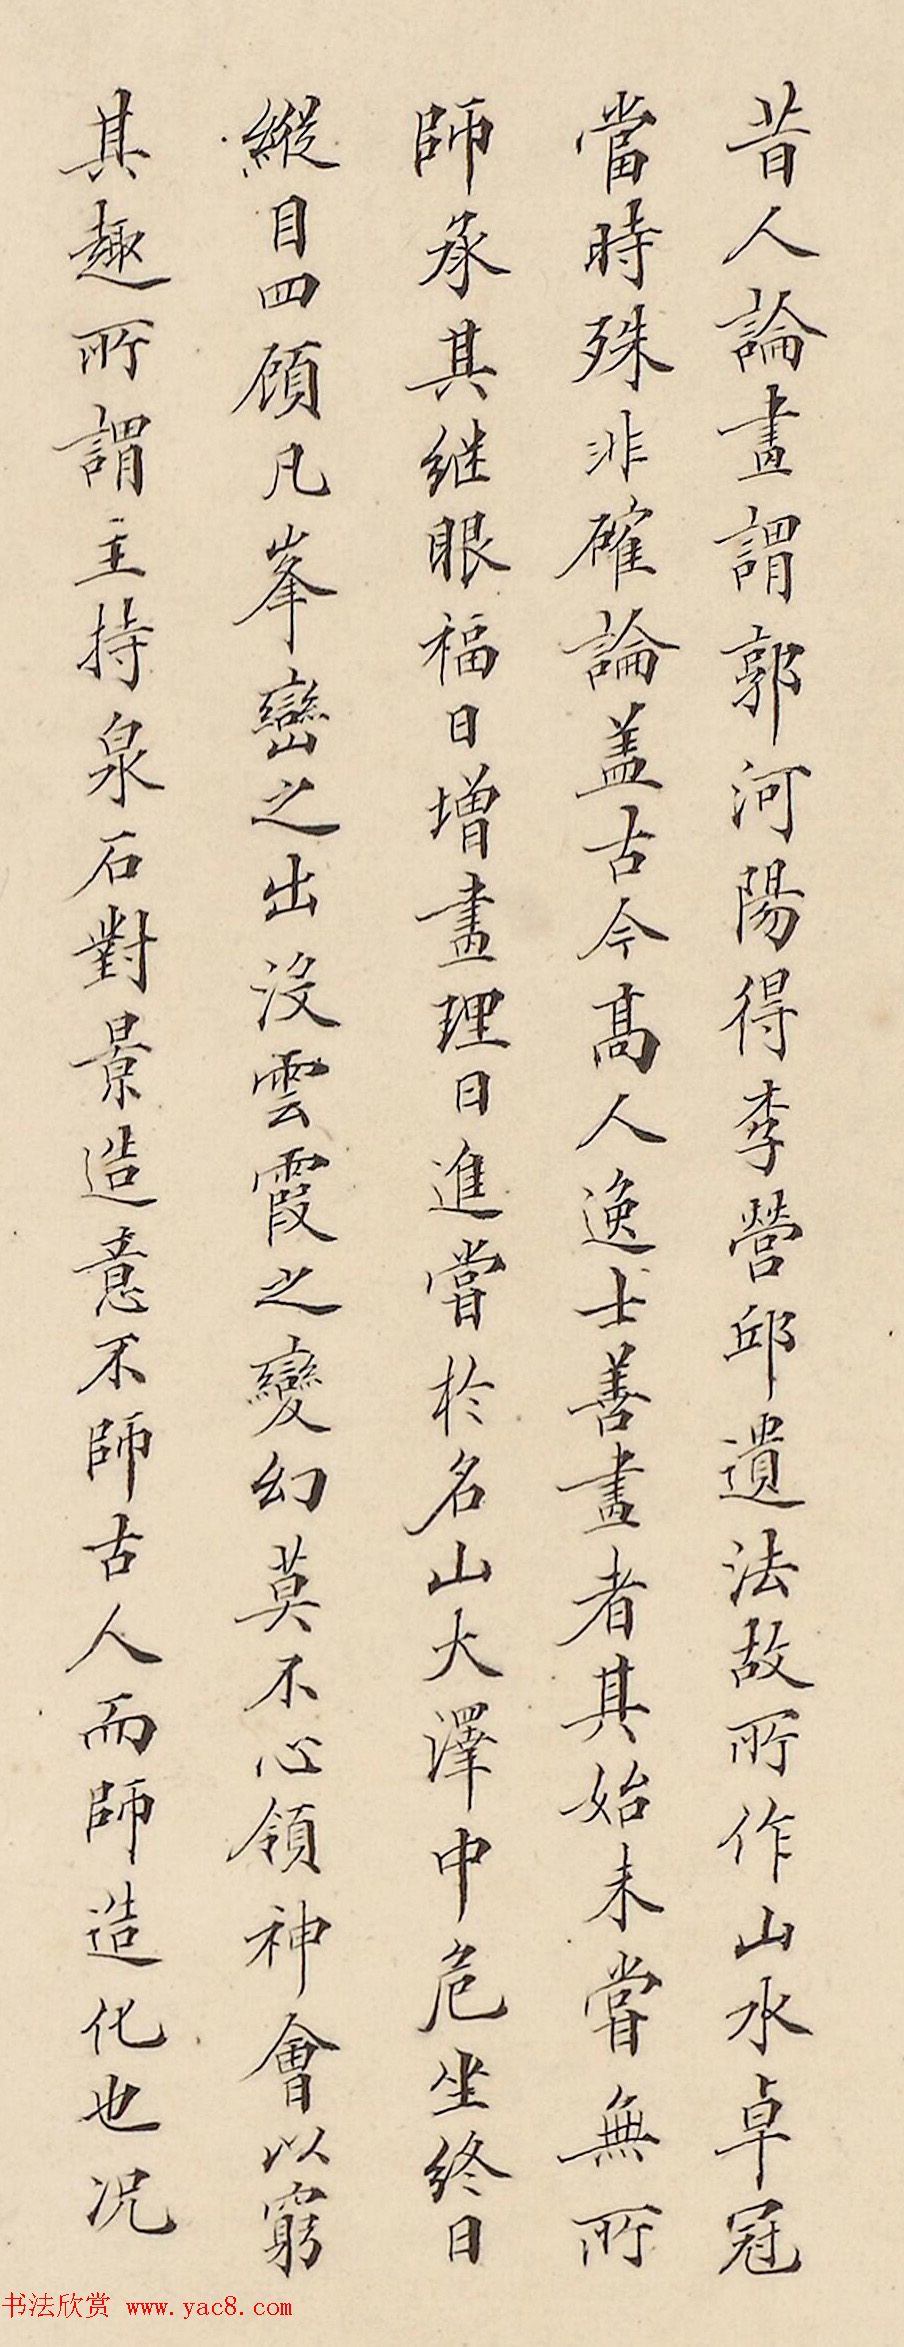 昔人論畫謂郭河陽得李營邱遺法故所作山水卓冠
當時殊非確論盖古今髙人逸士善畫者其始未嘗無所
師承其继眼福日增畫理日進嘗於名山大澤中危坐终日
縱目四顧凡峯巒之出没雲霞之變幻莫不心領神會以窮
其趣所謂主持泉石對景造意不師古人而師造化也况
书法欣赏 www.yac8.com